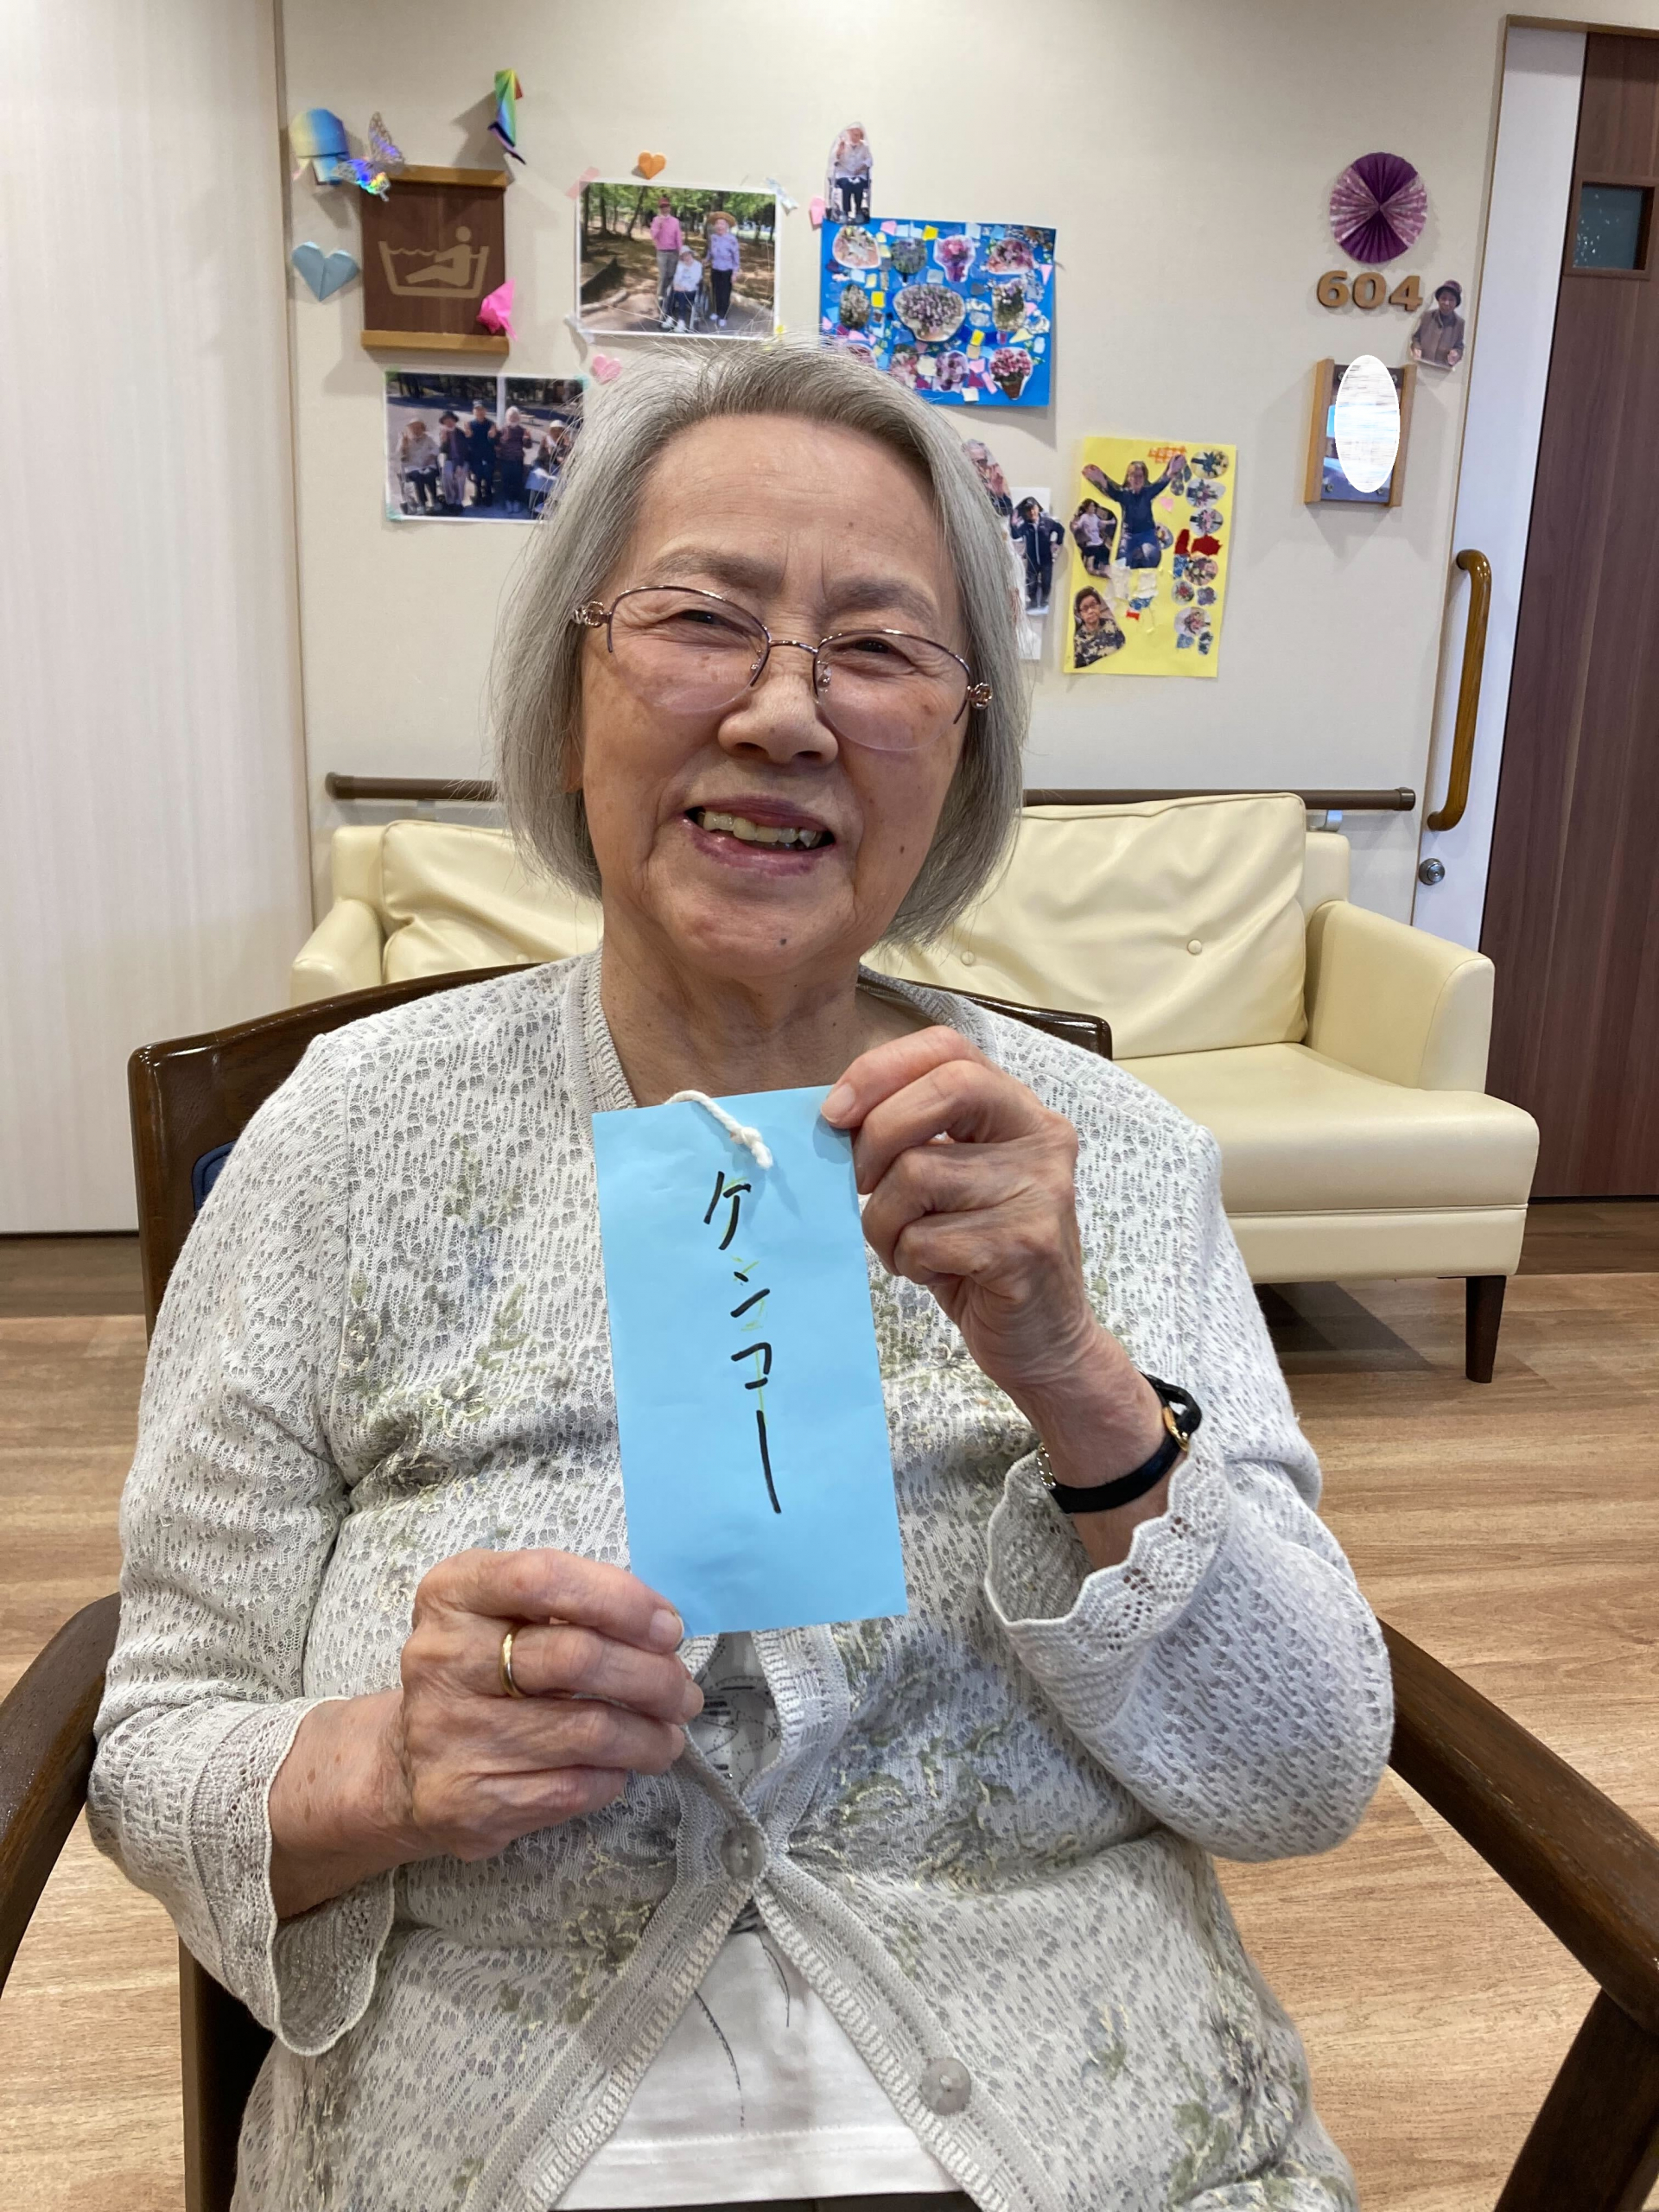 604
ケンコー